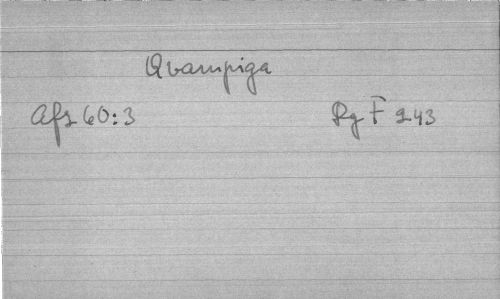 Qvarnpiga
Afz 60:3 Rg F 243